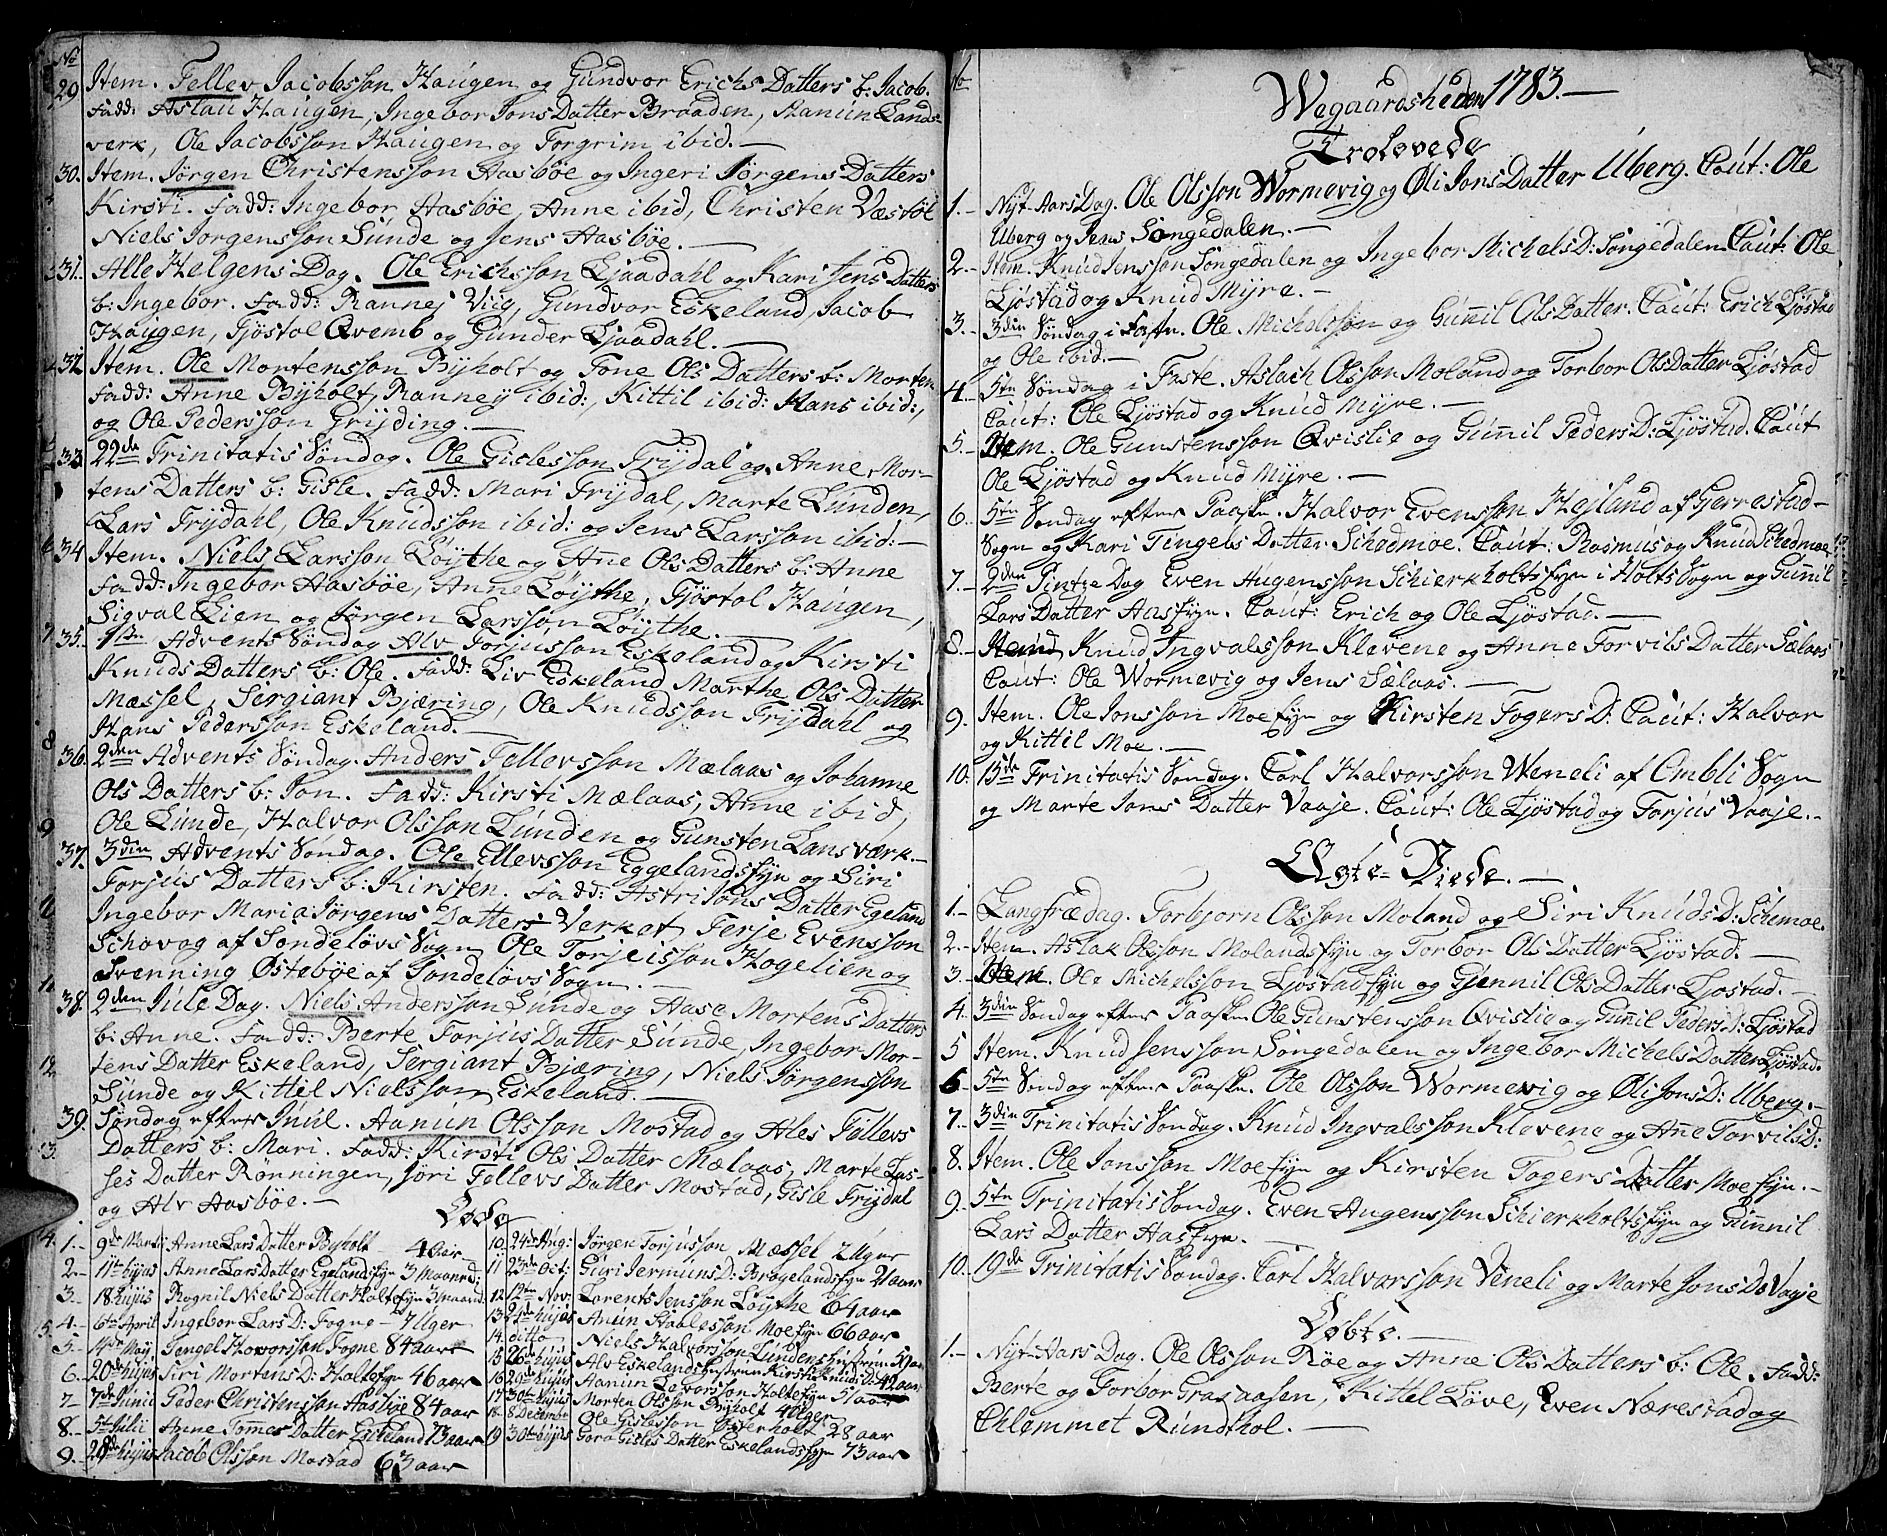 No
29. Item. Tellev Jacobsson Haugen og Gundvor Erichs Datters b: Jacob.
Fadd: Aslau Haugen, Ingebor Jons Datter Braaden, Aanun Lands-
verk, Ole Jacobsson Haugen og Torgrim ibid. —
30. Item. Jørgen Christensson Aasbøe og Ingeri Jørgens Datters
Kirsti. Fadd: Ingebor Aasbøe, Anne ibid, Christen Væstøl
Niels Jørgensson Sunde og Jens Aasbøe. —
31. Alle Helgens Dag. Ole Erichsson Ljaadahl og Kari Jens Datters
b: Ingebor. Fadd: Rannej Viig, Gundvor Eskeland, Jacob
Haugen, Tjøstol Qvemb og Gunder Ljaadahl. —
32. Item. Ole Mortensson Byholt og Tone Ols Datters b: Morten
Fadd: Anne Byholt, Ranney ibid:, Kittil ibid: Hans ibid:,
og Ole Pedersson Gryding. —
33. 22de Trinitatis Søndag. Ole Gislesson Trydal og Anne Mor-
tens Datters b: Gisle. Fadd: Mari Trydal, Marte Lunden,
Lars Trydahl, Ole Knudsson ibid: og Jens Larsson ibid: —
34. Item. Niels Larsson Løythe og Anne Ols Datters b: Anne
Fadd: Ingebor Aasbøe, Anne Løythe, Tjøstol Haugen,
Sigval Lien og Jørgen Larsson Løythe. —
35. 1ste Advents Søndag Alv Torjusson Eskeland og Kirsti
Knuds Datters b: Ole. Fadd: Liv Eskeland Marthe Ols Datter
Mæssel, Sergiant Bjæring, Ole Knudsson Trydahl og
Hans Pedersson Eskeland. —
36. 2den Advents Søndag. Anders Tellevsson Mælaas og Johanne
Ols Datters b: Jon. Fadd: Kirsti Mælaas, Anne ibid,
Ole Lunde, Halvor Olsson Lunden og Gunsten Lansværk. —
37. 3din Advents Søndag. Ole Ellevsson Eggelandsfyn og Siri
Torjus Datters b: Kirsten. Fadd: Astri Jons Datter Egeland
Ingebor Maria Jørgens Datter Verket, Terje Evensson
Schov og af Søndeløvs Sogn, Ole Torjeisson Hogelien og
Svenning Østebøe af Søndeløvs Sogn. —
38. 2den Jule Dag. Niels Andersson Lunde og Aase Mortens Datters
b: Anne. Fadd: Berte Torjus Datter Sunde, Ingebor Mor-
tens Datter Eskeland, Sergiant Bjæring, Niels Jørgensson
Sunde og Kittil Nielsson Eskeland. —
39. Søndag efter Juul. Aanun Olsson Mostad og Ales Tellevs
Datters b: Mari. Fadd: Kirsti Ols Datter Mælaas, Marte Las-
ses Datter Rønningen, Jøri Tellevs Datter Mostad, Gisle Trydal
og Alv Aasbøe. —
Døde
1. – 9de Marti Anne Lars Datter Byholt – 4 Aar
2. – 11te hujus Anne Lars Datter Egelandsfyn 3 Maaned:
3. – 18 hujus Rognil Niels Datter Holtefyn 3 Maaned
4. – 6te April Ingebor Lars D: Fogne – 7 Uger
5. – 14de May Tengel Howorsson Fogne 84 aar
6. – 20de hujus Siri Mortens D: Holtefyn 46 aar
7 – 7de Junii Peder Christensson Aasbøe 84 aar
8. – 5te Julii Anne Tomes Datter Eskeland 73 aar
9. – 20de hujus Jacob Olsson Mostad 63 aar
10. 24de Aug: Jørgen Torjusson Mæssel 2 Uger
11 23de Oct: Guri Jermuns D: Brogelandsfyn 21 aar
12 12te Nov: Larents Jensson Løythe 64 aar
13. 24de hujus Anun Haalesson Moefyn 66 aar
14. ditto Niels Halvorsson Lundens
15 26de hujus Alv Eskelands Hustrue Kirsti Knuds D: 42 aar
16 29de hujus Aanun Lovorsson Holtefyn 51 aar
17 30te hujus Morten Olsson Byholt 4 Uger
18. 8 Decembr Ole Gislesson Østerholt 28 aar
19 30te hujus Goro Gisles Datter Eskelandsfyn 73 aar
No
Wegaardsheden 1783. —
Trolovede
1. – Nyt-Aars Dag. Ole Olsson Wormevig og Øli Jons Datter Uberg. Caut: Ole
Uberg og Jens Songedalen. —
2. – Item. Knud Jensson Songedalen og Ingebor Michels D: Songedalen Caut: Ole
Ljøstad og Knud Myre. —
3. – 3din Søndag i Faste. Ole Michelsson og Gunnil Ols Datter. Caut: Erich Ljøstad
og Ole ibid. —
4. – 5te Søndag i Faste. Aslach Olsson Moland og Torbor Ols Datter Ljøstad
Caut: Ole Ljøstad og Knud Myre. —
5. – Item. Ole Gunstensson Qvislie og Gunnil Peders D: Ljøstad. Caut
Ole Ljøstad og Knud Myre. —
6. – 5te Søndag efter Paaske. Halvor Evensson Hejland af Gjerrestad-
Sogn og Kari Tengels Datter Schedmoe. Caut: Rasmus og Knud Schedmoe
7. – 2den Pintze Dag Even Augensson Schierkholtsfyn i Holts Sogn og Gunnil
Lars Datter Aasfyn. Caut: Erich og Ole Ljøstad. —
8. – Item Knud Ingvalsson Klevene og Anne Torvils Datter Sælaas
Caut: Ole Wormevig og Jens Sælaas. —
9. Item. Ole Jonsson Moefyn og Kirsten Togers D: Caut: Halvor
og Kittil Moe. —
10. 15de Trinitatis Søndag. Carl Halvorsson Weneli af Ombli Sogn
og Marte Jons Datter Vaaje. Caut: Ole Ljøstad og Torjus Vaaje. –
Ægte-Viede. —
1. – Langfredag. Torbjorn Olsson Moland og Siri Knuds D: Schemoe.
2. – Item. Aslak Olsson Molandsfyn og Torbor Ols Datter Ljøstad. —
3. – Item. Ole Michelsson Ljøstadfyn og Gunnil Ols Datter Ljøstad. –
4. 3din Søndag efter Paaske Ole Gunstensson Qvislie og Gunnil Peders D: Ljøstad
5 Item. Knud Jensson Songedalen og Ingebor Michels Datter Ljøstad.
6 – 5te Søndag efter Paaske. Ole Olsson Wormevig og Øli Jons D: Uberg. –
7. – 3din Trinitatis Søndag. Knud Ingvalsson Klevene og Anne Torvils D:
8. Item. Ole Jonsson Moefyn og Kirsten Togers Datter Moefyn. –
9. 5te Trinitatis Søndag. Even Augensson Schierkholtsfyn og Gunnil
Lars Datter Aasfyn. –
10. 19de Trinitatis Søndag. Carl Halvorsson Veneli og Marte Jons D: Vaaje
Døbte. —
1. – Nyt-Aars Dag. Ole Olsson Røe og Anne Ols Datters b: Ole. Fadd:
Berte og Torbor Grasaasen, Kittel Løve, Even Nærestad og
Chlemmet Rundhol. —